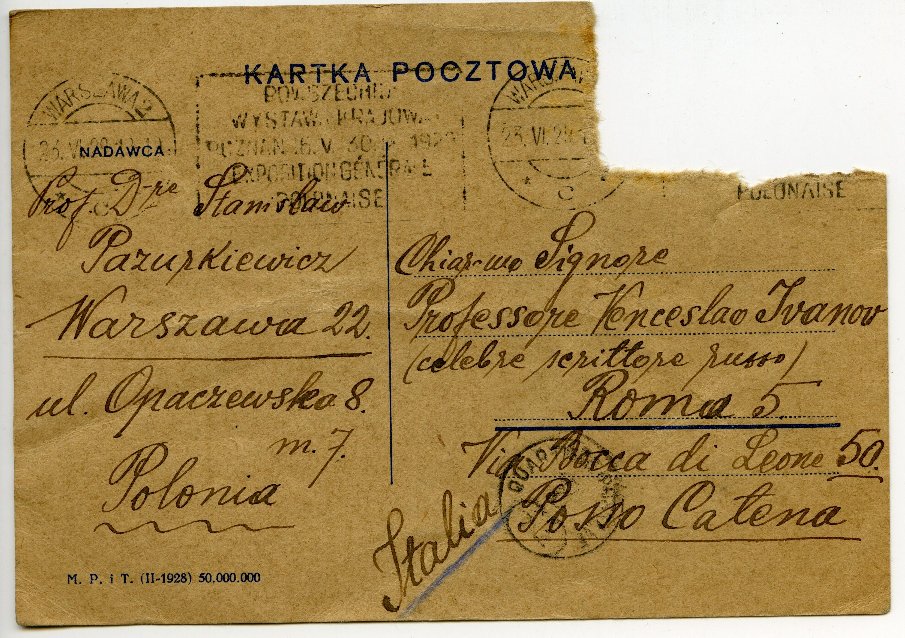 KARTKA POCZTOWA
WARSZAWA 2
23.VI.29
* C *
POWSZECHNA
WYSTAWA KRAJOWA
POZNAŃ 16.V. 30. 1929
EXPOSITION GÉNÉRALE
POLONAISE
23.VI.29
* C
POLONAISE
NADAWCA
Prof. D-re Stanisław
Pazurkiewicz
Warszawa 22.
ul. Opaczewska 8.
m. 7.
Polonia
M. P. i T. (II-1928) 50.000.000
Chiar-mo Signore
Professore Venceslao Ivanov
(celebre scrittore russo)
Roma 5.
Via Bocca di Leone 50.
Posso Catena
Italia